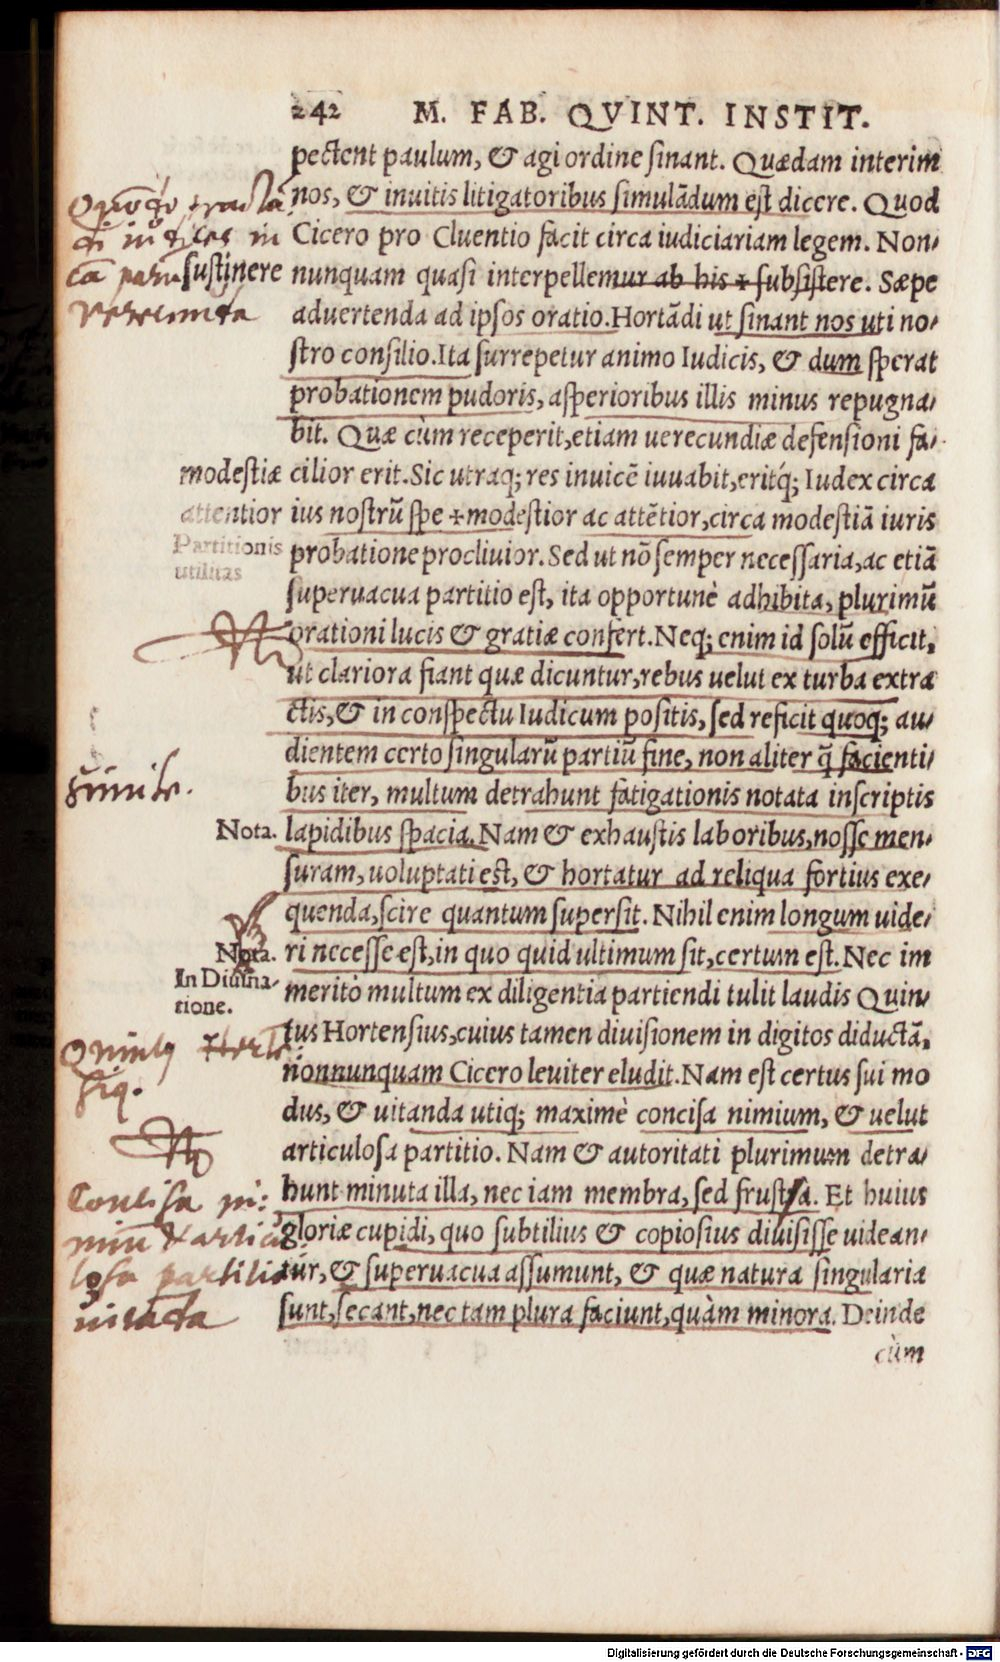 242 M. FAB. QVINT. INSTIT.
pectent paulum, & agi ordine ſinant. Quædam interim
nos, & inuitis litigatoribus ſimulādum eſt dicere. Quod
Cicero pro Cluentio facit circa iudiciariam legem. Non-
ſuſtinere
nunquam quaſi interpellemur ab his + ſubſiſtere. Sæpe
aduertenda ad ipſos oratio. Hortādi ut ſinant nos uti no-
ſtro conſilio. Ita ſurrepetur animo Iudicis, & dum ſperat
probationem pudoris, aſperioribus illis minus repugna-
bit. Quæ cùm receperit, etiam uerecundiæ defenſioni fa-
modeſtiæ
cilior erit. Sic utraq; res inuicē iuuabit, eritq́; Iudex circa
attentior
ius noſtrū ſpe + modeſtior ac attētior, circa modeſtiā iuris
Partitionis
utilitas
probatione procliuior. Sed ut nō ſemper neceſſaria, ac etiā
ſuperuacua partitio eſt, ita opportunè adhibita, plurimū
orationi lucis & gratiæ confert. Neq; enim id ſolū efficit,
ut clariora fiant quæ dicuntur, rebus uelut ex turba extra
ctis, & in conſpectu Iudicum poſitis, ſed reficit quoq; au-
dientem certo ſingularū partiū fine, non aliter q̄ facienti-
Simile.
bus iter, multum detrahunt fatigationis notata inſcriptis
Nota.
lapidibus ſpacia. Nam & exhauſtis laboribus, noſſe men-
ſuram, uoluptati eſt, & hortatur ad reliqua fortius exe-
quenda, ſcire quantum ſuperſit. Nihil enim longum uide-
Nota.
ri neceſſe eſt, in quo quid ultimum ſit, certum eſt. Nec im
In Diuina-
tione.
meritò multum ex diligentia partiendi tulit laudis Quin-
tus Hortenſius, cuius tamen diuiſionem in digitos diductā,
nonnunquam Cicero leuiter eludit. Nam eſt certus ſui mo
dus, & uitanda utiq; maximè conciſa nimium, & uelut
articuloſa partitio. Nam & autoritati plurimum detra-
hunt minuta illa, nec iam membra, ſed fruſta. Et huius
gloriæ cupidi, quo ſubtilius & copioſius diuiſiſſe uidean-
tur, & ſuperuacua aſſumunt, & quæ natura ſingularia
ſunt, ſecant, nec tam plura faciunt, quàm minora. Deinde
cùm
Conciſa ni:
miū & articu
loſa partitio
uitāda
Digitalisierung gefördert durch die Deutsche Forschungsgemeinschaft - DFG